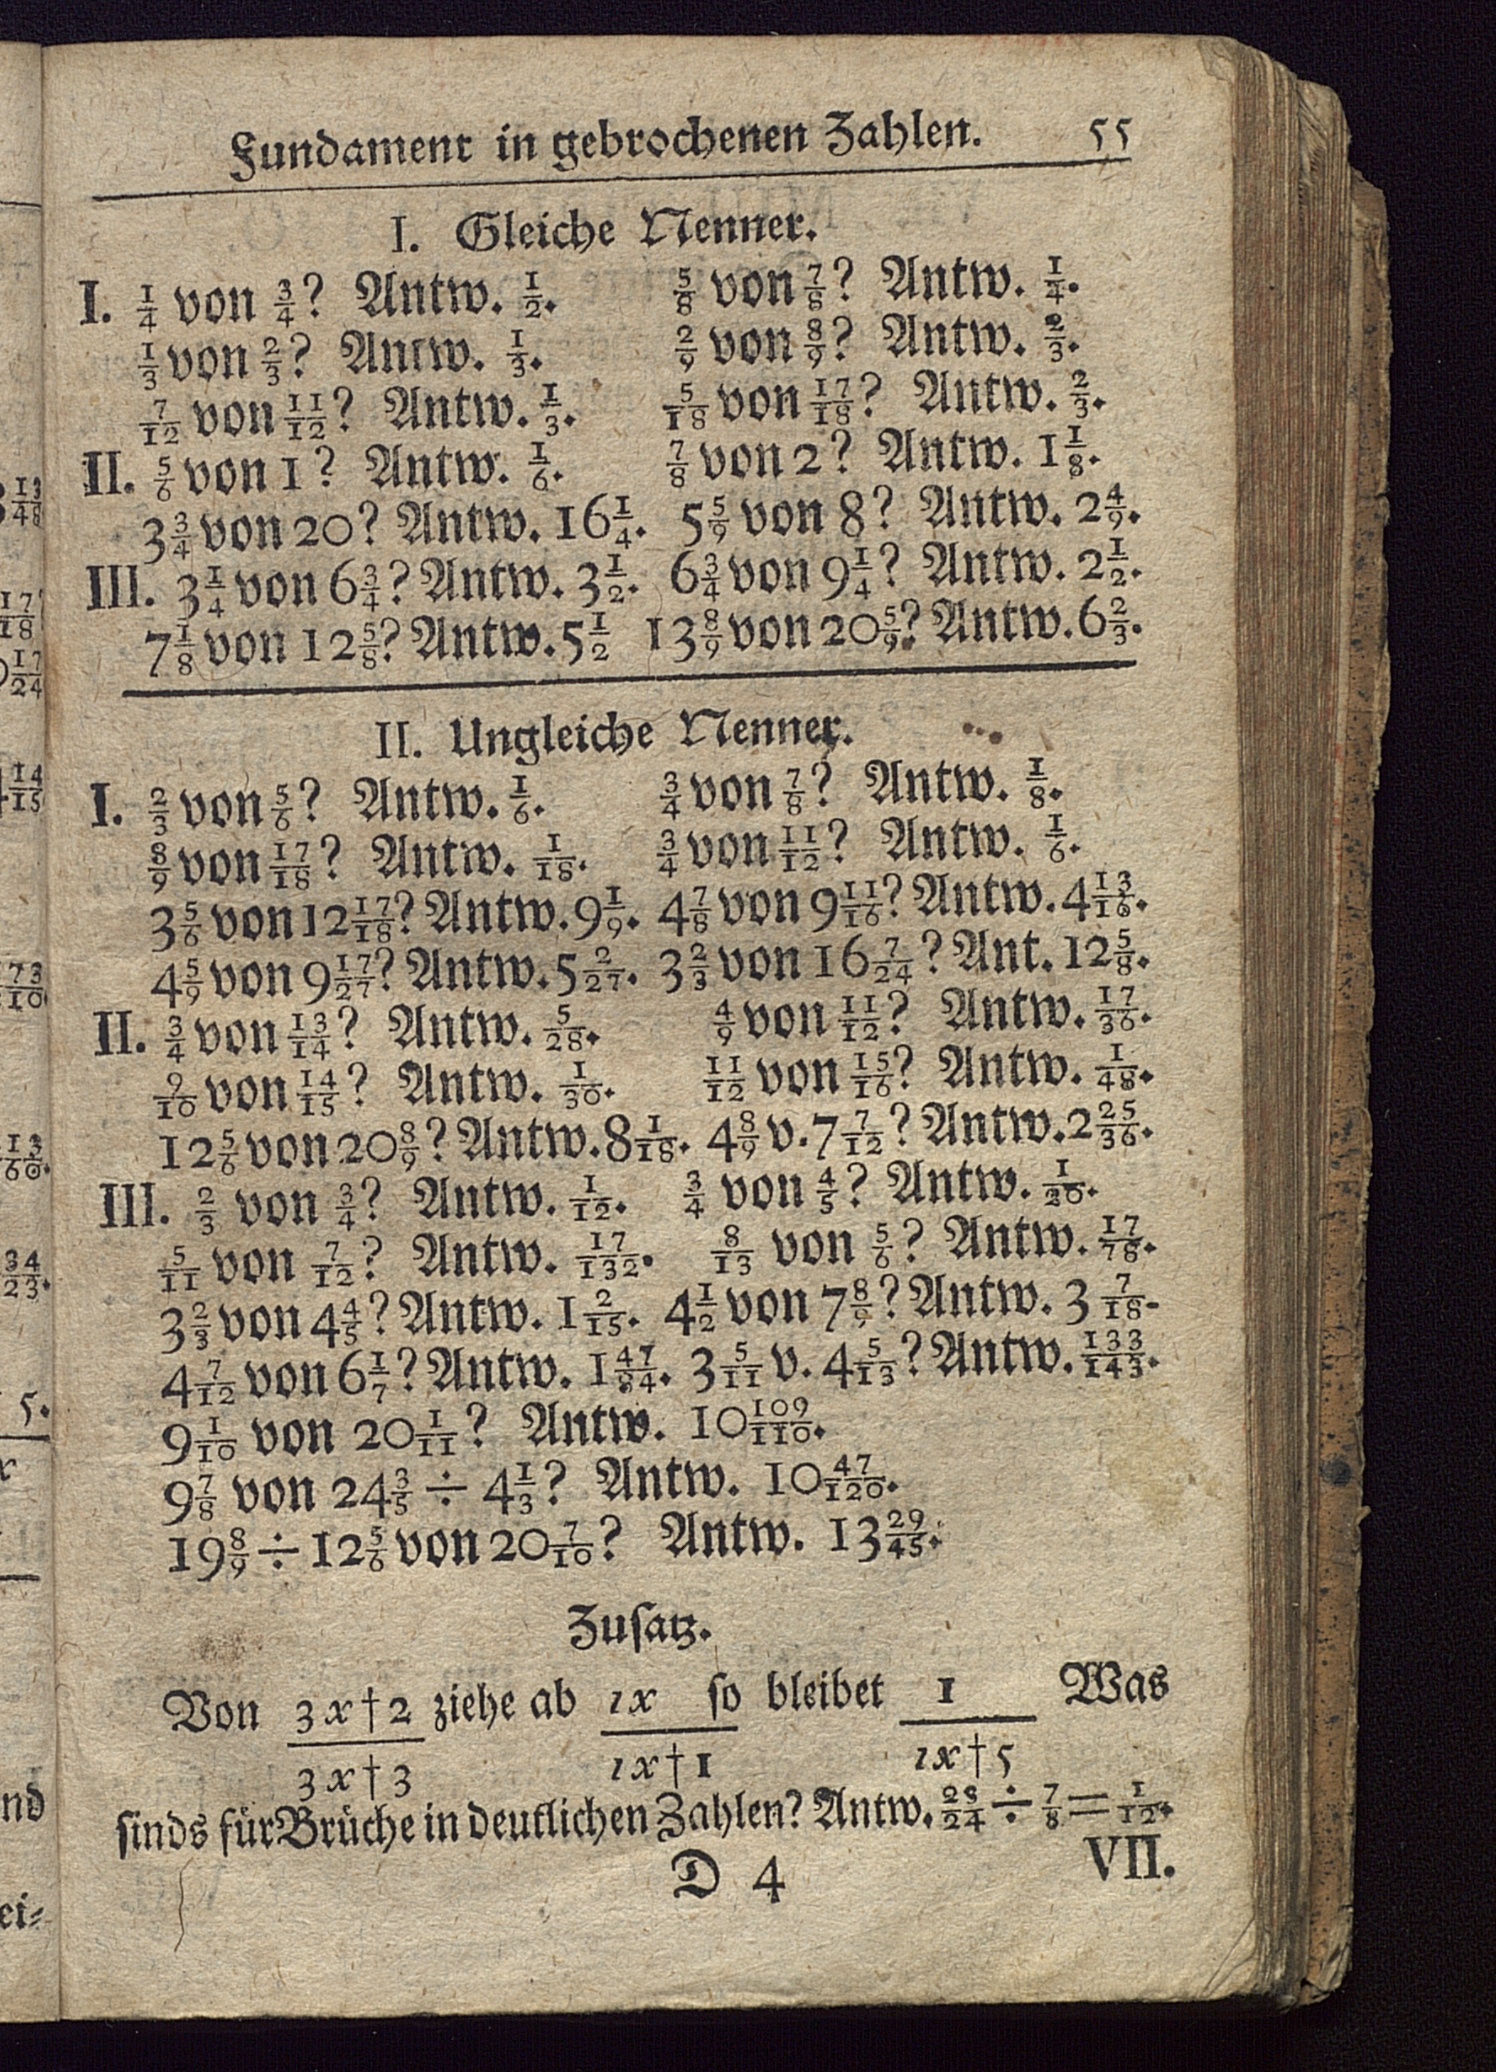 Fundament in gebrochenen Zahlen. 55
I. Gleiche Nenner.
I. 1/4 von 3/4? Antw. 1/2. 5/8 von 7/8? Antw. 1/4.
1/3 von 2/3? Antw. 1/3. 2/9 von 8/9? Antw. 2/3.
7/12 von 11/12? Antw. 1/3. 5/18 von 17/18? Antw. 2/3.
II. 5/6 von 1? Antw. 1/6. 7/8 von 2? Antw. 1 1/8.
3 3/4 von 20? Antw. 16 1/4. 5 5/9 von 8? Antw. 2 4/9.
III. 3 1/4 von 6 3/4? Antw. 3 1/2. 6 3/4 von 9 1/4? Antw. 2 1/2.
7 1/8 von 12 5/8? Antw. 5 1/2 13 8/9 von 20 5/9? Antw. 6 2/3.
II. Ungleiche Nenner.
I. 2/3 von 5/6? Antw. 1/6. 3/4 von 7/8? Antw. 1/8.
8/9 von 17/18? Antw. 1/18. 3/4 von 11/12? Antw. 1/6.
3 5/6 von 12 17/18? Antw. 9 1/9. 4 7/8 von 9 11/16? Antw. 4 13/16.
4 5/9 von 9 17/27? Antw. 5 2/27. 3 2/3 von 16 7/24? Ant. 12 5/8.
II. 3/4 von 13/14? Antw. 5/28. 4/9 von 11/12? Antw. 17/36.
9/10 von 14/15? Antw. 1/30. 11/12 von 15/16? Antw. 1/48.
12 5/6 von 20 8/9? Antw. 8 1/18. 4 8/9 v. 7 7/12? Antw. 2 25/36.
III. 2/3 von 3/4? Antw. 1/12. 3/4 von 4/5? Antw. 1/20.
5/11 von 7/12? Antw. 17/132. 8/13 von 5/6? Antw. 17/78.
3 2/3 von 4 4/5? Antw. 1 2/15. 4 1/2 von 7 8/9? Antw. 3 7/18.
4 7/12 von 6 1/7? Antw. 1 47/84. 3 5/11 v. 4 5/13? Antw. 133/143.
9 1/10 von 20 1/11? Antw. 10 109/110.
9 7/8 von 24 3/5 ÷ 4 1/3? Antw. 10 47/120.
19 8/9 ÷ 12 5/6 von 20 7/10? Antw. 13 29/45.
Zusatz.
Von 3x†2 ziehe ab 1x so bleibet 1 Was
3x†3 1x†1 1x†5
sinds für Brüche in deutlichen Zahlen? Antw. 23/24 ÷ 7/8 = 1/12.
D 4 VII.